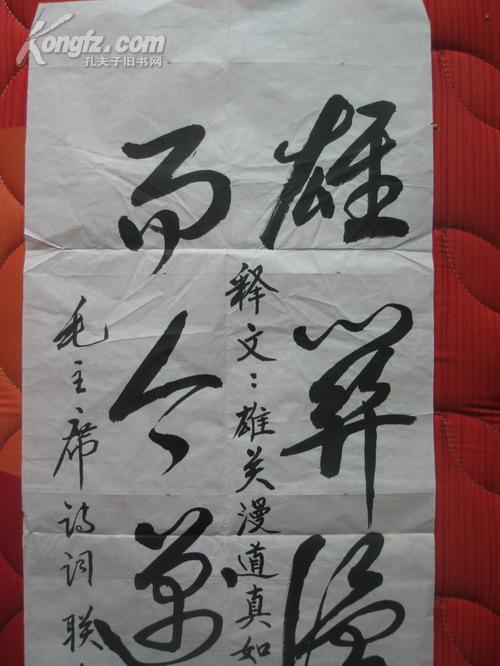 Kongfz.com
孔夫子旧书网
雄关漫
释文：雄关漫道真如
而今迈
毛主席诗词联